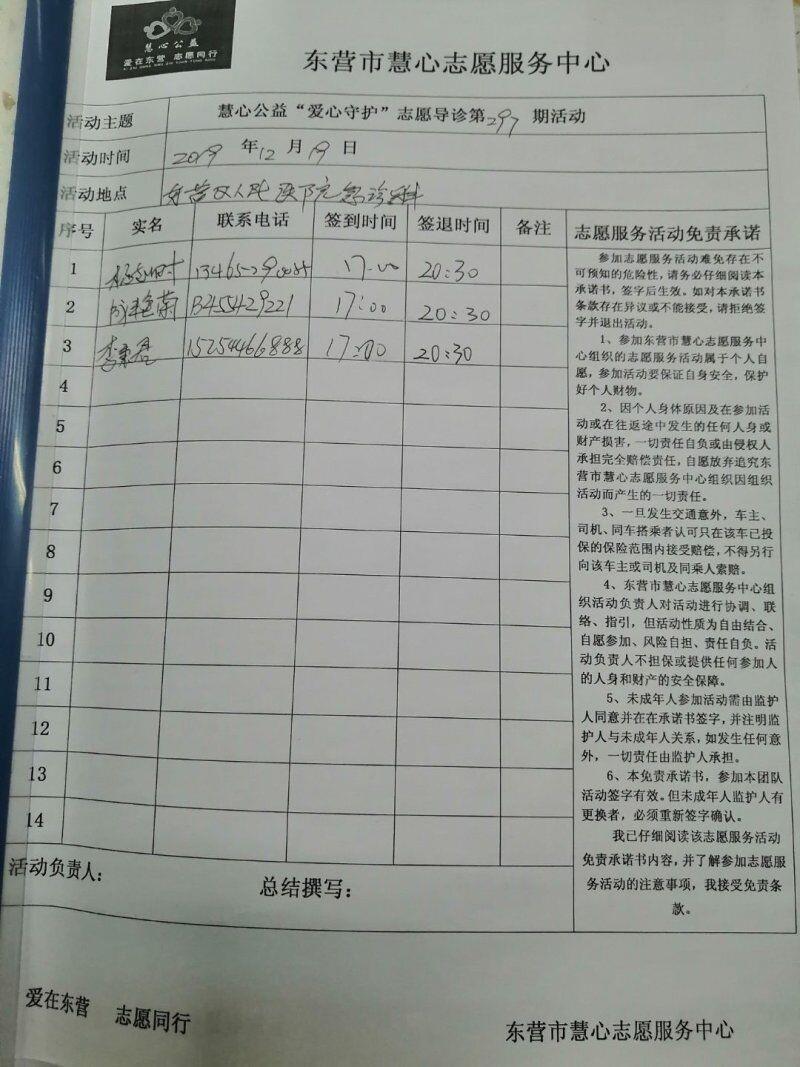 慧心公益
爱在东营 志愿同行
东营市慧心志愿服务中心
活动主题 慧心公益“爱心守护”志愿导诊第297期活动
活动时间 2019年12月19日
活动地点 东营区人民医院急诊科
序号 实名 联系电话 签到时间 签退时间 备注 志愿服务活动免责承诺
1 17:00 20:30
2 13455429221 17:00 20:30
3 15254466888 17:00 20:30
4
5
6
7
8
9
10
11
12
13
14
参加志愿服务活动难免存在不
可预知的危险性，请务必仔细阅读本
承诺书，签字后生效。如对本承诺书
条款存在异议或不能接受，请拒绝签
字并退出活动。
1、参加东营市慧心志愿服务中
心组织的志愿服务活动属于个人自
愿，参加活动要保证自身安全，保护
好个人财物。
2、因个人身体原因及在参加活
动或在往返途中发生的任何人身或
财产损害，一切责任自负或由侵权人
承担完全赔偿责任，自愿放弃追究东
营市慧心志愿服务中心组织因组织
活动而产生的一切责任。
3、一旦发生交通意外，车主、
司机、同车搭乘者认可只在该车已投
保的保险范围内接受赔偿，不得另行
向该车主或司机及同乘人索赔。
4、东营市慧心志愿服务中心组
织活动负责人对活动进行协调、联
络、指引，但活动性质为自由结合、
自愿参加、风险自担、责任自负。活
动负责人不担保或提供任何参加人
的人身和财产的安全保障。
5、未成年人参加活动需由监护
人同意并在在承诺书签字，并注明监
护人与未成年人关系，如发生任何意
外，一切责任由监护人承担。
6、本免责承诺书，参加本团队
活动签字有效。但未成年人监护人有
更换者，必须重新签字确认。
我已仔细阅读该志愿服务活动
免责承诺书内容，并了解参加志愿服
务活动的注意事项，我接受免责条
款。
活动负责人： 总结撰写：
爱在东营 志愿同行
东营市慧心志愿服务中心